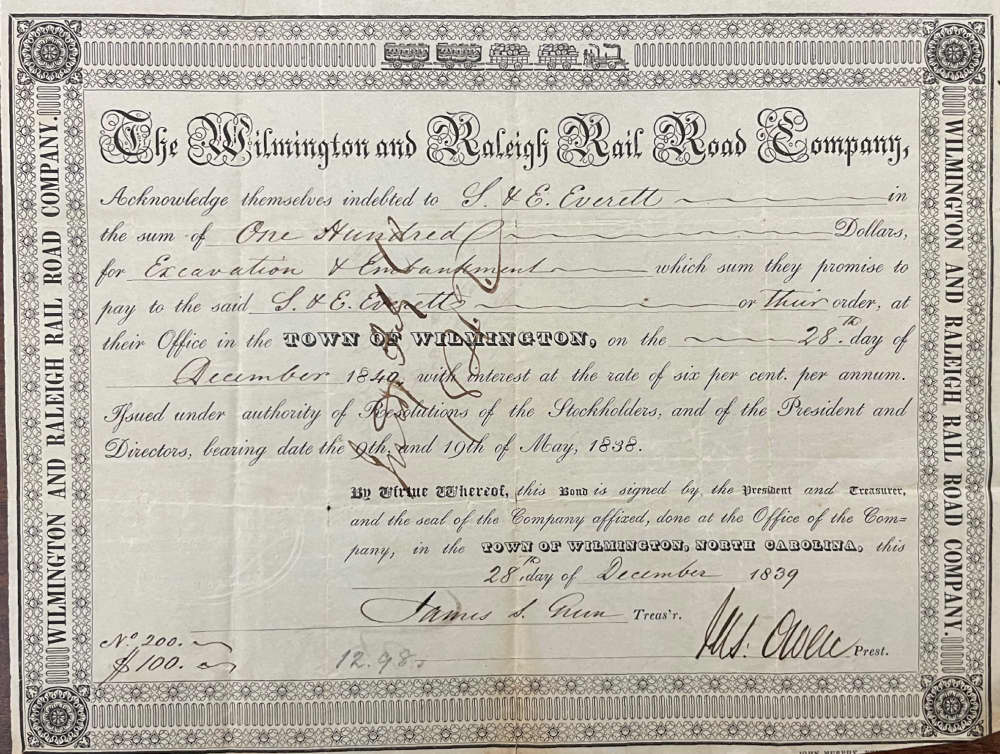 WILMINGTON AND RALEIGH RAIL ROAD COMPANY.
The Wilmington and Raleigh Rail Road Company,
Acknowledge themselves indebted to S. & E. Everett in
the sum of One Hundred Dollars,
for Excavation & Embankment which sum they promise to
pay to the said S. & E. Everett or Their order, at
their Office in the TOWN OF WILMINGTON, on the 28th day of
December 1840 with interest at the rate of six per cent. per annum.
Issued under authority of Resolutions of the Stockholders, and of the President and
Directors, bearing date the 9th, and 19th of May, 1838.
By Virtue Whereof, this Bond is signed by the President and Treasurer,
and the seal of the Company affixed, done at the Office of the Com=
pany, in the TOWN OF WILMINGTON, NORTH CAROLINA, this
28th day of December 1839
James S. Green Treas'r.
Jas. Owen Prest.
No. 200.
$100.
12.98
WILMINGTON AND RALEIGH RAIL ROAD COMPANY.
JOHN MURPHY